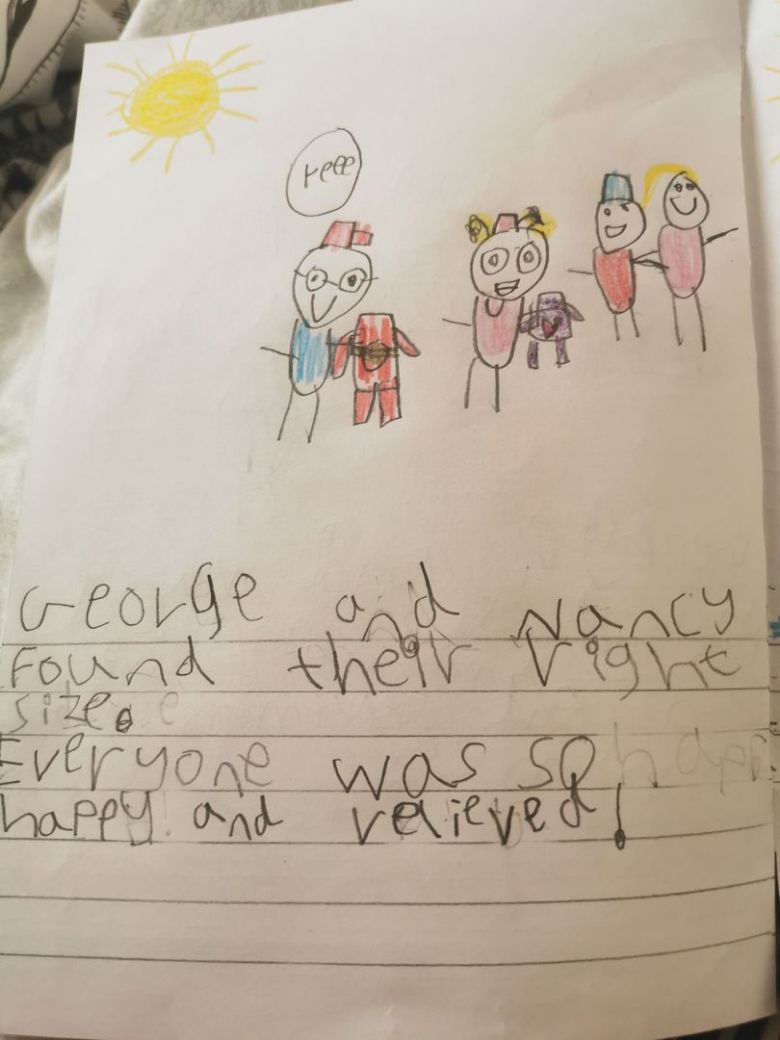 reee
George and Nancy
Found their right
size.
Everyone was so
happy and relieved!